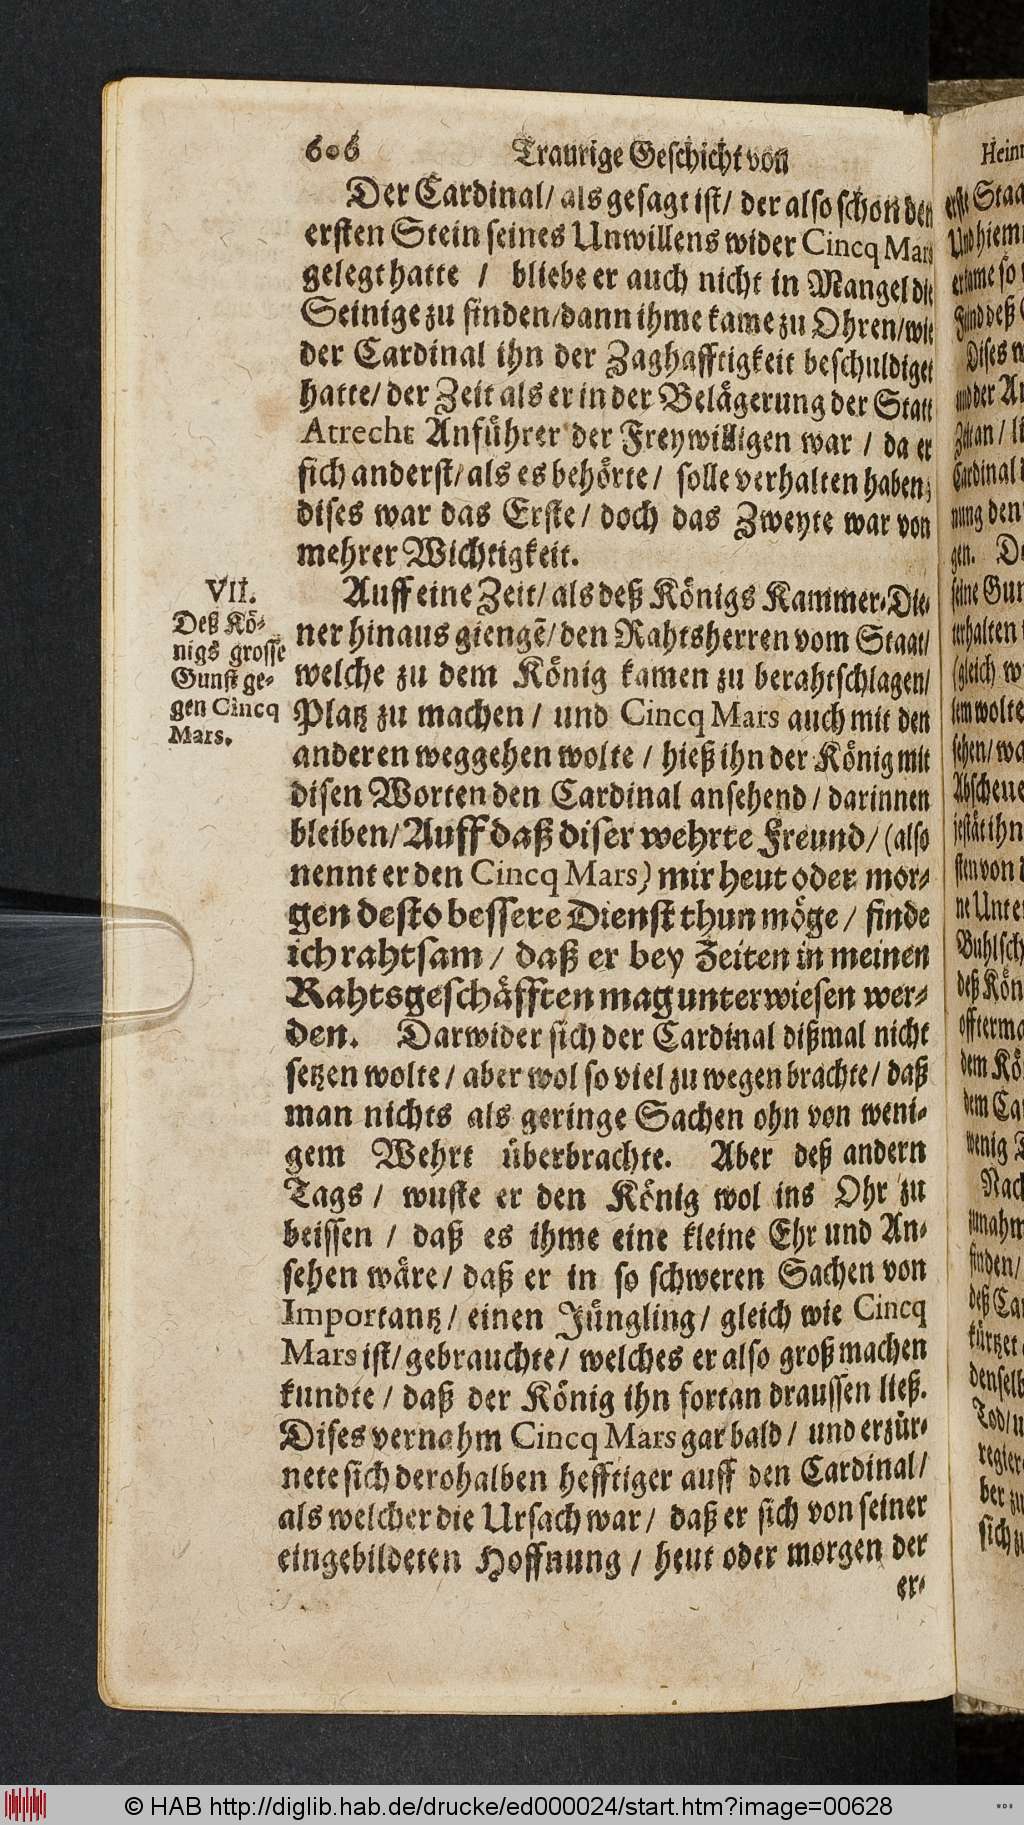 606 Traurige Geschicht von
Der Cardinal/ als gesagt ist/ der also schon den
ersten Stein seines Unwillens wider Cincq Mars
gelegt hatte / bliebe er auch nicht in Mangel die
Seinige zu finden/dann ihme kame zu Ohren/wie
der Cardinal ihn der Zaghafftigkeit beschuldiget
hatte/ der Zeit als er in der Belägerung der Statt
Atrecht Anführer der Freywilligen war / da er
sich anderst/ als es behörte/ solle verhalten haben;
dises war das Erste/ doch das Zweyte war von
mehrer Wichtigkeit.
VII.
Deß Kö-
nigs grosse
Gunst ge-
gen Cincq
Mars.
Auff eine Zeit/ als deß Königs Kammer-Die-
ner hinaus giengẽ/ den Rahtsherren vom Staat/
welche zu dem König kamen zu berahtschlagen/
Platz zu machen / und Cincq Mars auch mit den
anderen weggehen wolte / hieß ihn der König mit
disen Worten den Cardinal ansehend / darinnen
bleiben/ Auff daß diser wehrte Freund/ (also
nennt er den Cincq Mars) mir heut oder mor-
gen desto bessere Dienst thun möge / finde
ich rahtsam / daß er bey Zeiten in meinen
Rahtsgeschäfften mag unterwiesen wer-
den. Darwider sich der Cardinal dißmal nicht
setzen wolte / aber wol so viel zu wegen brachte/ daß
man nichts als geringe Sachen ohn von weni-
gem Wehrt überbrachte. Aber deß andern
Tags / wuste er den König wol ins Ohr zu
beissen / daß es ihme eine kleine Ehr und An-
sehen wäre/ daß er in so schweren Sachen von
Importantz/ einen Jüngling/ gleich wie Cincq
Mars ist/ gebrauchte/ welches er also groß machen
kundte / daß der König ihn fortan draussen ließ.
Dises vernahm Cincq Mars gar bald / und erzür-
nete sich derohalben hefftiger auff den Cardinal/
als welcher die Ursach war/ daß er sich von seiner
eingebildeten Hoffnung / heut oder morgen der
er-
© HAB http://diglib.hab.de/drucke/ed000024/start.htm?image=00628